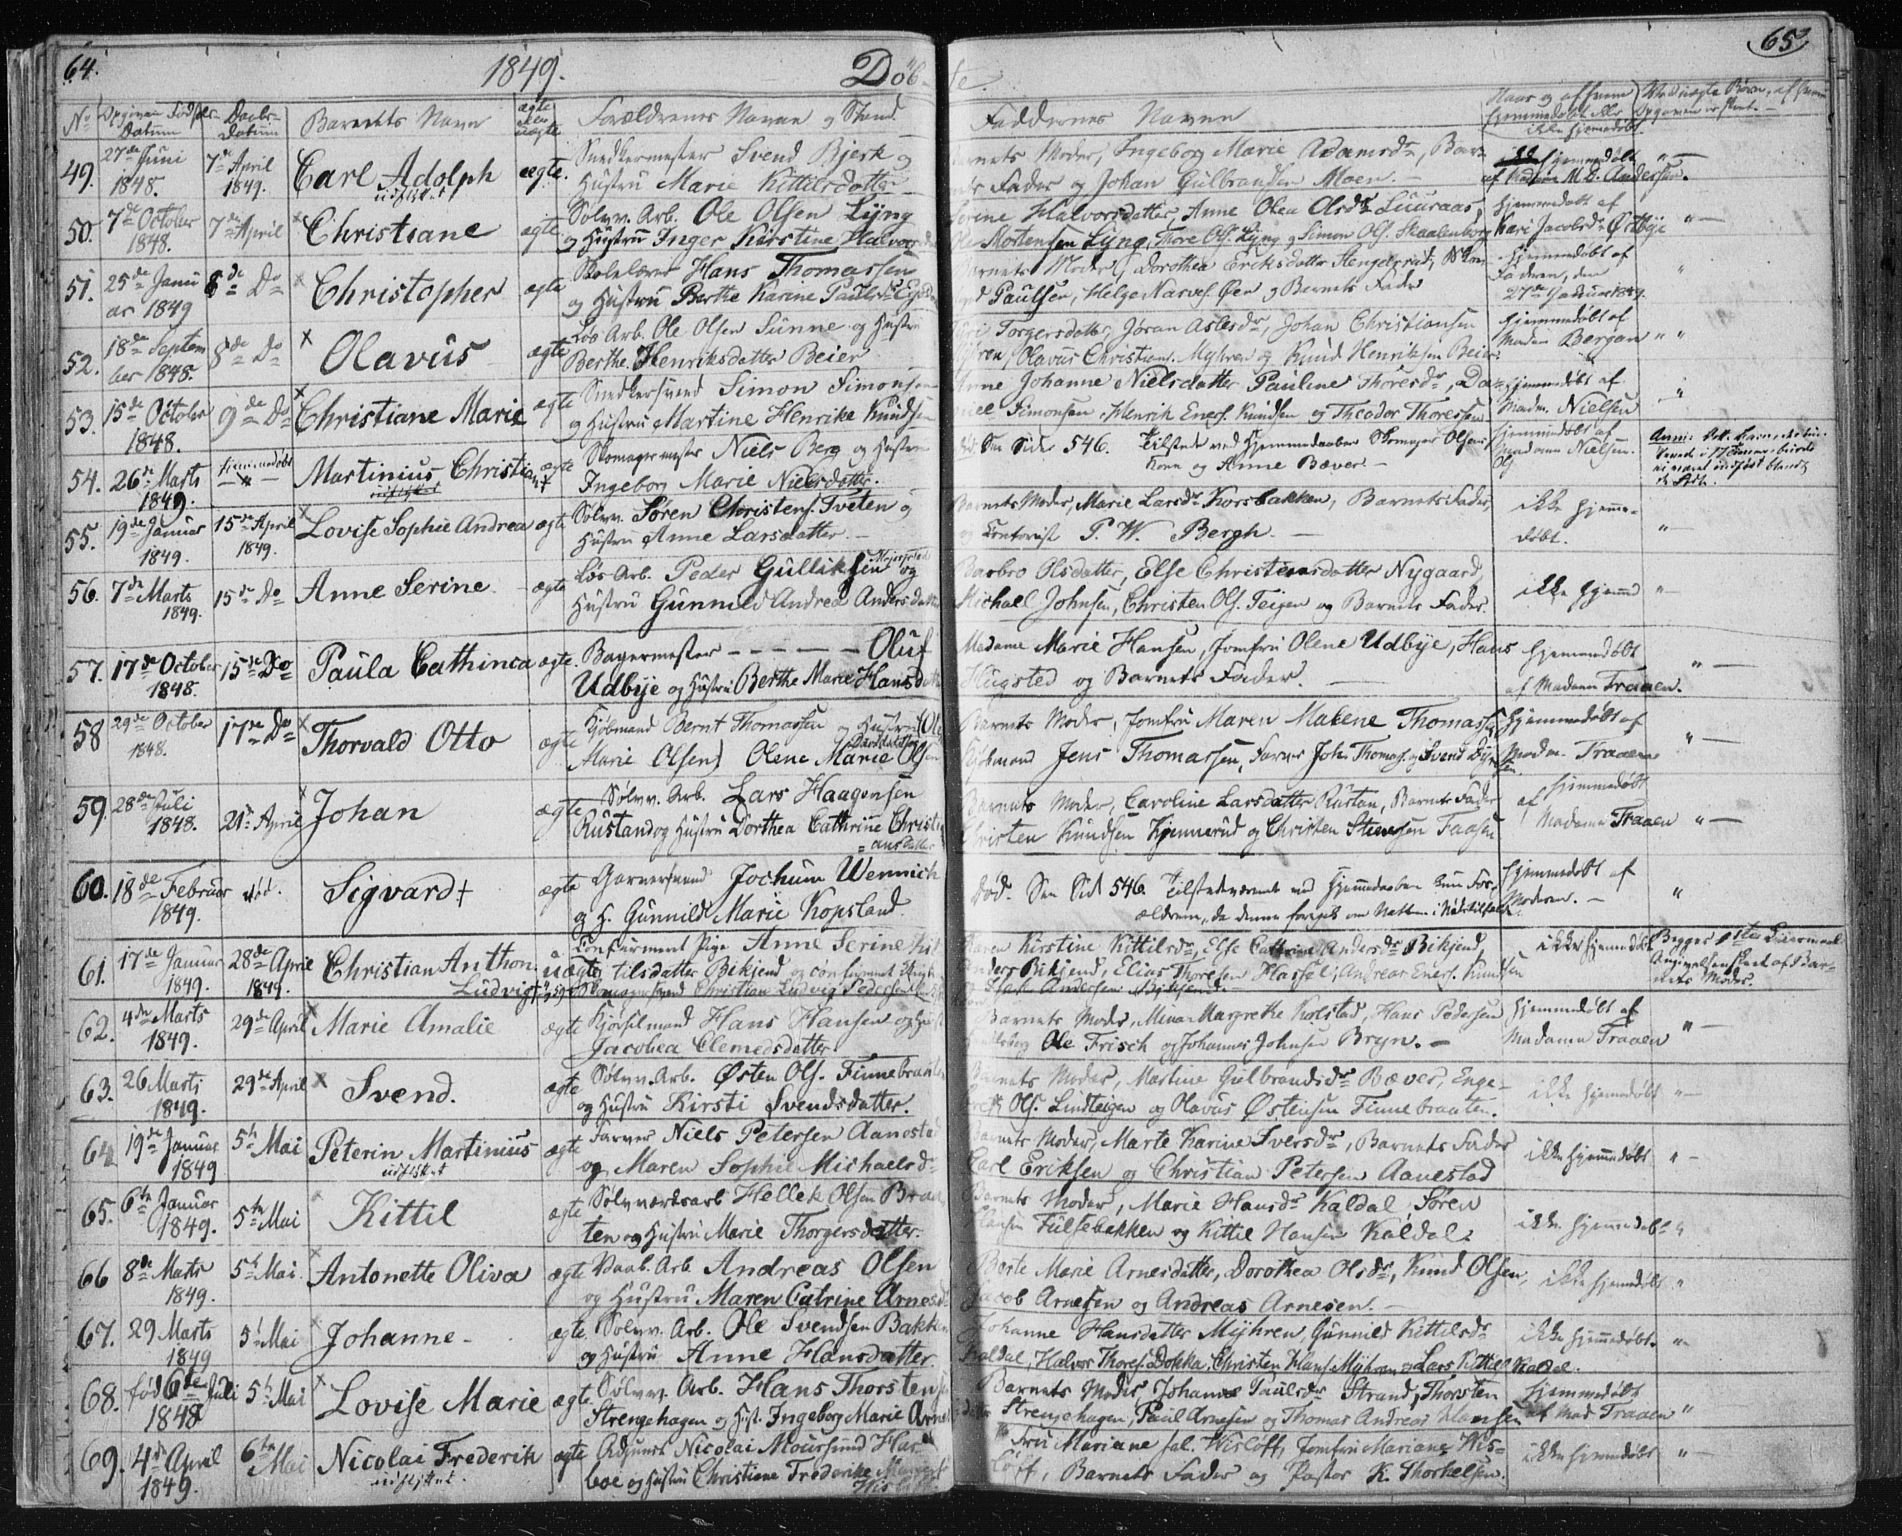 64.
1849.
Døb-
te.
65
No
Opgiven Fødsels-
Datum
Daabs-
Datum
Barnets Navn
ægte
eller
uægte
Forældrenes Navne og Stand
Faddernes Navne
49.
27de Juni
1848.
7de April
1849.
Carl Adolph
udflyttet
ægte.
Snedkermester Svend Bjerk og
Hustru Marie Kittilsdatter
Barnets Moder, Ingeborg Marie Adamsdr, Bar-
nets Fader og Johan Gulbrandsen Moen. —
hjemmedøbt
af Madam M. B. Andersen.
50.
7de October
1848.
7de April
Christiane
ægte
Sølvv. Arb. Ole Olsen Lyng
og Hustru Inger Kirstine Halvorsdr
Serine Halvorsdatter, Anne Olea Olsdr Luuraas,
Ole Mortensen Lyng, Thore Ols. Lyng og Simon Ols. Skaalenborg
hjemmedøbt af
Kari Jacobsdr Østbye
51.
25de Janu
ar 1849
8de Do
Christopher
ægte
Skolelærer Hans Thomassen
og Hustru Berthe Karine Paulsdr
Barnets Moder, Dorothea Eriksdatter Stengelsrud,
Paulsen, Helge Narves. Øen og Barnets Fader
hjemmedøbt af
Faderen, den
27de Januar 1849.
52.
18de Septem
ber 1848.
8de Do
Olavus
ægte
Løs Arb. Ole Olsen Sunne og Hustru
Berthe Henriksdatter Beier
Torgersdatter, Jøran Aslesdr, Johan Christiansen
Myhren, Olavus Christians. Myhren og Knud Henriksen Beier
hjemmedøbt af
Madam Bergan
53.
15de October
1848.
9de Do
Christiane Marie
ægte
Snedkersvend Simon Simonsen
og Hustru Martine Henrike Knudsen
Anne Johanne Nielsdatter Pauline Thoresdr, Da-
niel Simonsen, Henrik Eners. Knudsen og Theodor Thoresen
hjemmedøbt af
Madm. Nielsen
54.
26de Marts
1849.
hjemmedøbt
Martinius Christi
an †
ægte
Skomagermester Niels Berg og Hustru
Ingeborg Marie Nielsdatter.
død. See Side 546. Tilstede ved Hjemmedaaben Skomager Olsens
Kone og Anne Bæver. —
hjemmedøbt af
Jordemoder Nielsen.
55.
19de Januar
1849.
15de April
1849.
Lovise Sophie Andrea
ægte
Sølvv. Søren Christens. Tveten og
Hustru Anne Larsdatter. —
Barnets Moder, Marie Larsdr Korsbakken, Barnets Fader,
og Contorist P. W. Bergh. —
ikke hjemme-
døbt.
56.
7de Marts
1849.
15de Do
Anne Serine
ægte
Løs Arb. Peder Gulliksen og
Hustru Gunnild Andrea Andersdatter
Barbro Olsdatter, Else Christensdatter Nygaard,
Michael Johnsen, Christen Ols. Teigen og Barnets Fader.
ikke hjemmed
57.
17de October
1848.
15de Do
Paula Cathinca
ægte.
Bagermester — — — — Oluf
Udbye og Hustru Berthe Marie Hansdatter
Madame Marie Hansen, Jomfru Olene Udbye, Hans
Hugsted og Barnets Fader. —
hjemmedøbt
af Madam Traaen.
58
29de October
1848.
17de Do
Thorvald Otto
ægte
Kjøbmand Bernt Thomassen og Hustru (Ole
Marie Olsen) Olene Marie Olsen
Barnets Moder, Jomfru Maren Malene Thomassen,
Kjøbmand Jens Thomassen, Farver Johs Thomas. og Svend
hjemmedøbt af
Madm. Traaen
59.
28de Juli
1848.
21de April
Johan
ægte
Sølvv. Arb. Lars Haagensen
Rustand og Hustru Dorthea Cathrine Christi-
ansdatter
Barnets Moder, Caroline Larsdatter Rustan, Barnets Fader
Christen Knudsen Kjennerud og Christen Steensen Faasen
hjemmedøbt
af Madame Traaen
60.
18de Februar
1849.
død.
Sigvard †
ægte
Garversvend Jochum Wennich
og H. Gunnild Marie Kopsland.
Død. See Side 546. Tilstedeværende ved Hjemmedaaben kun For-
ældrene, da denne foregik om Natten i Nødstilfælde.
hjemmedøbt af
Moderen. —
61.
17de Januar
1849.
28de April
1849.
Christian Anthon
Ludvig †
uægte
Confirmeret Pige Anne Serine Kit
tilsdatter Bikjend og confirmeret
Skomagersvend Christian Ludvig Pedersen
Karen Kirstine Kittilsdr, Else Cathrine Andersdr Bikjend,
Anders Bikjend, Elias Thoresen Hasfel, Andreas Eners. Knudsen
og Isak Andersen Bikjend. —
ikke hjemmedøbt
Begges 1ste Leiermaal
Angivelsen skeet af Bar-
nets Moder.
62.
4de Marts
1849.
29de April
Marie Amalie
ægte
Kjørselmand Hans Hansen og Hustru
Jacobea Clemedsdatter
Barnets Moder, Mina Margrethe Kolstad, Hans Pedersen
Ole Frisch og Johannes Johnsen Bryn. —
hjemmedøbt af
Madame Traaen
63.
26 Marts
1849.
29de April
Svend.
ægte
Sølvv. Arb. Østen Ols. Finnebraaten
og Hustru Kirsti Svendsdatter.
Barnets Moder, Martine Gulbrandsdr Bæver, Enge-
bret Ols. Lindteigen og Olavus Østensen Finnebraaten.
ikke hjemmedøbt
64
19de Januar
1849
5te Mai
Peterin Martinius
udflyttet
ægte
Farver Niels Petersen Aanestad
og Maren Sophie Michaelsd-
Barnets Moder, Marte Karine Iversdr, Barnets Fader
Carl Eriksen og Christian Petersen Aanestad
ikke hjemmedøbt
65.
6te Januar
1849.
5te Mai
Kittil
ægte
Sølvværksarb Hellek Olsen Braa
ten og Hustru Marie Thorgersdatter.
Barnets Moder, Marie Hansdr Kaldal, Søren
Hansen Fulsebakken og Kittil Hansen Kaldal.
ikke hjemmedøbt
66
8de Marts
1849.
5te Mai.
Antonette Oliva
ægte
Vaab. Arb. Andreas Olsen
og Hustru Maren Catrine Arnesd
Berte Marie Arnesdatter, Dorothea Olsdr, Knud Olsen,
Jacob Arnesen og Andreas Arnesen. —
ikke hjemmedøbt
67.
29 Marts
1849
5te Mai
Johanne
ægte
Sølvv. Arb. Ole Svendsen Bakken
og Hustru Anne Hansdatter
Johanne Hansdatter Myhren, Gunnild Kittilsdr
Kaldal, Halvor Thores. Dokka, Christen Hans. Myhren og Lars Kittils. Kaldal.
ikke hjemmedøbt.
68.
fød 6te Juli
1848
5te Mai
Lovise Marie
ægte
Sølvv. Arb. Hans Thorstens
Strengehagen og Hust. Ingeborg Marie Arnes
Barnets Moder Johanne Paulsdr Strand, Thorsten
Strengehagen, Paul Arnesen og Thomas Andreas Hansen
hjemmedøbt
af Mad Traaen
69.
4de April
1849.
6te Mai
Nicolai Frederik
udflyttet
ægte
Adjunct Nicolai Moursund Har
boe og Hustru Christiane Frederike Margret
Wisløff.
Fru Mariane sal. Wisløff, Jomfru Mariane Wis-
løff, Barnets Fader og Pastor K. Thorkelsen.
ikke hjemmedøbt